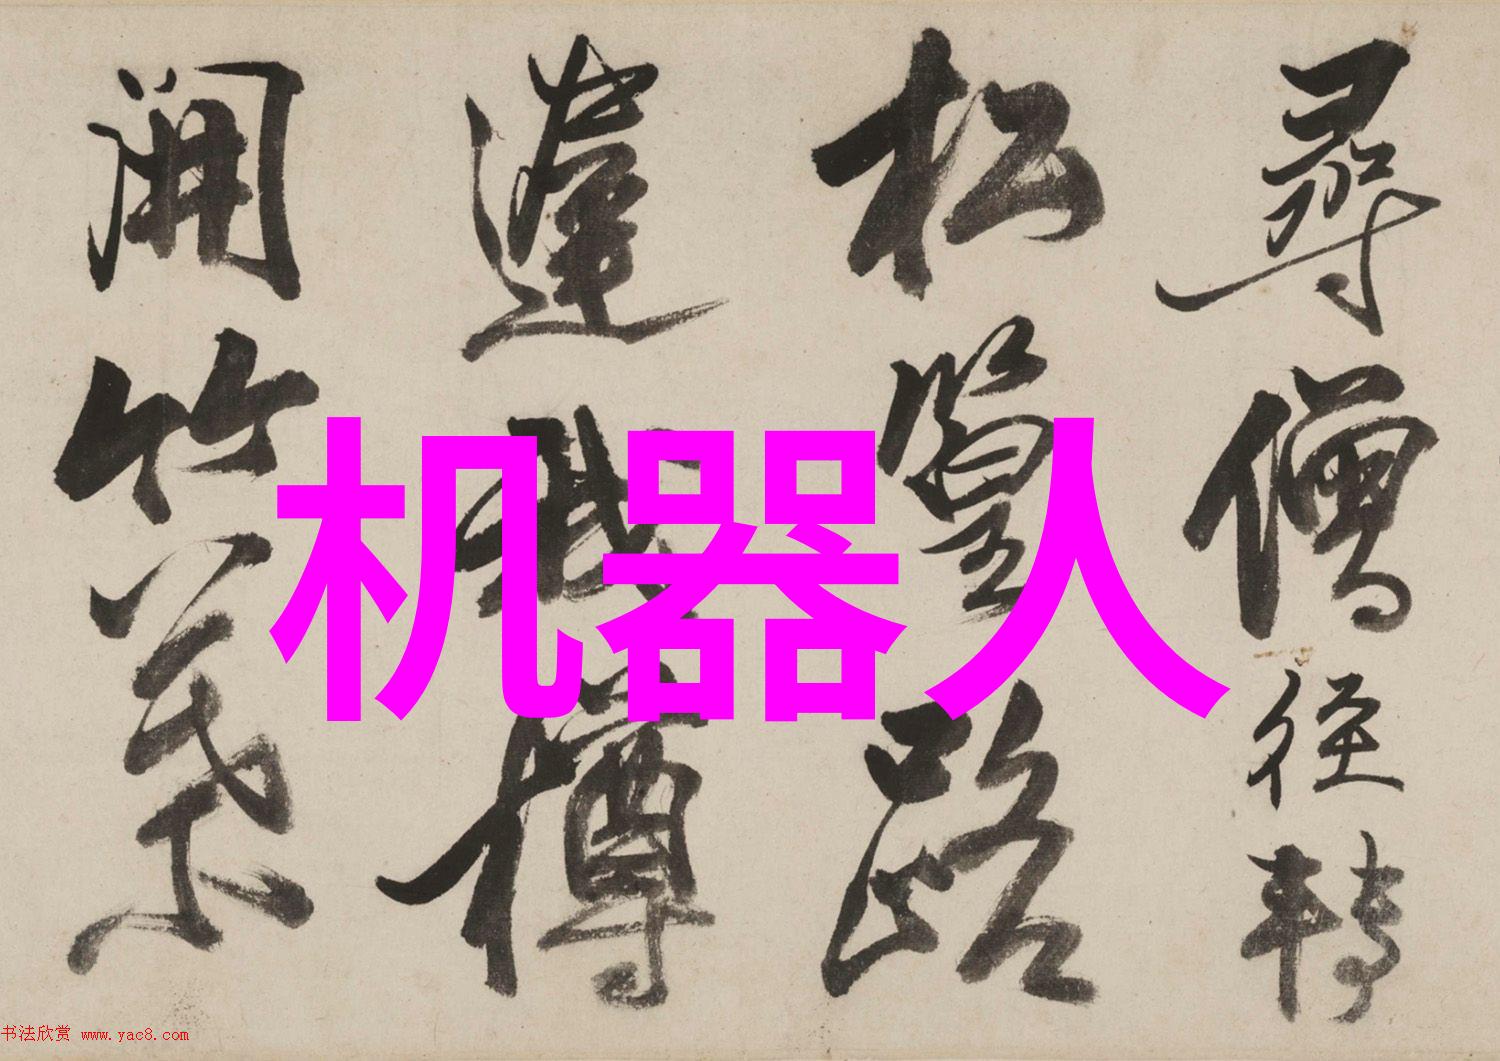 尋僧徑轉
松篁路
我樽
開竹葉
机器人
书法欣赏 www.yac8.com